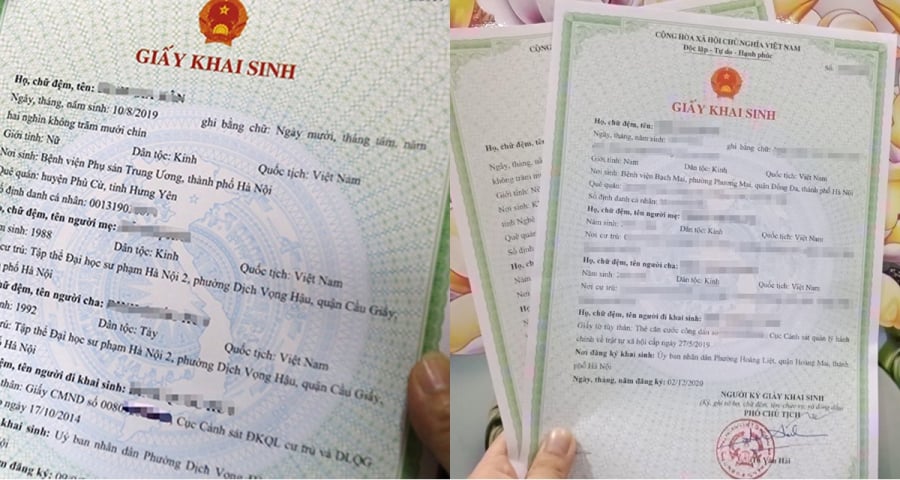 GIẤY KHAI SINH
Họ, chữ đệm, tên:
Ngày, tháng, năm sinh: 10/8/2019 ghi bằng chữ: Ngày mười, tháng tám, năm
hai nghìn không trăm mười chín
Giới tính: Nữ Dân tộc: Kinh Quốc tịch: Việt Nam
Nơi sinh: Bệnh viện Phụ sản Trung Ương, thành phố Hà Nội
Quê quán: huyện Phù Cừ, tỉnh Hưng Yên
định danh cá nhân: 0013190
chữ đệm, tên người mẹ:
sinh: 1988 Dân tộc: Kinh Quốc tịch: Việt Nam
cư trú: Tập thể Đại học sư phạm Hà Nội 2, phường Dịch Vọng Hậu, quận Cầu Giấy,
phố Hà Nội
chữ đệm, tên người cha:
1992 Dân tộc: Tày Quốc tịch: Việt Nam
trú: Tập thể Đại học sư phạm Hà Nội 2, phường Dịch Vọng Hậu, quận Cầu Giấy,
Hà Nội
đệm, tên người đi khai sinh:
thân: Giấy CMND số 0080 Cục Cảnh sát ĐKQL cư trú và DLQG
ngày 17/10/2014
khai sinh: Uỷ ban nhân dân Phường Dịch Vọng
đăng ký:
CỘNG
Họ, chữ
Ngày, tháng
không trăm
Giới tính: Nữ
Nơi
Quê quán
Số định
Họ, ch
Năm
Nơi
CỘNG HÒA XÃ HỘI CHỦ NGHĨA VIỆT NAM
Độc lập - Tự do - Hạnh phúc
Số:
GIẤY KHAI SINH
Họ, chữ đệm, tên:
Ngày, tháng, năm sinh: ghi bằng chữ:
Giới tính: Nam Dân tộc: Kinh Quốc tịch: Việt Nam
Nơi sinh: Bệnh viện Bạch Mai, phường Phương Mai, quận Đống Đa, thành phố Hà Nội
Quê quán:
Số định danh cá nhân:
Họ, chữ đệm, tên người mẹ:
Năm sinh: Dân tộc: Kinh Quốc tịch: Việt Nam
Nơi cư trú:
Họ, chữ đệm, tên người cha:
Năm sinh: Dân tộc: Kinh Quốc tịch: Việt Nam
Nơi cư trú:
Họ, chữ đệm, tên người đi khai sinh:
Giấy tờ tùy thân: Thẻ căn cước công dân số Cục Cảnh sát quản lý hành
chính về trật tự xã hội cấp ngày 27/5/2019
Nơi đăng ký khai sinh: Ủy ban nhân dân Phường Hoàng Liệt, quận Hoàng Mai, thành
phố Hà Nội
Ngày, tháng, năm đăng ký: 02/12/2020
NGƯỜI KÝ GIẤY KHAI SINH
(Ký, ghi rõ họ, chữ đệm, tên, chức vụ và đóng dấu)
PHÓ CHỦ TỊCH
Văn Hải